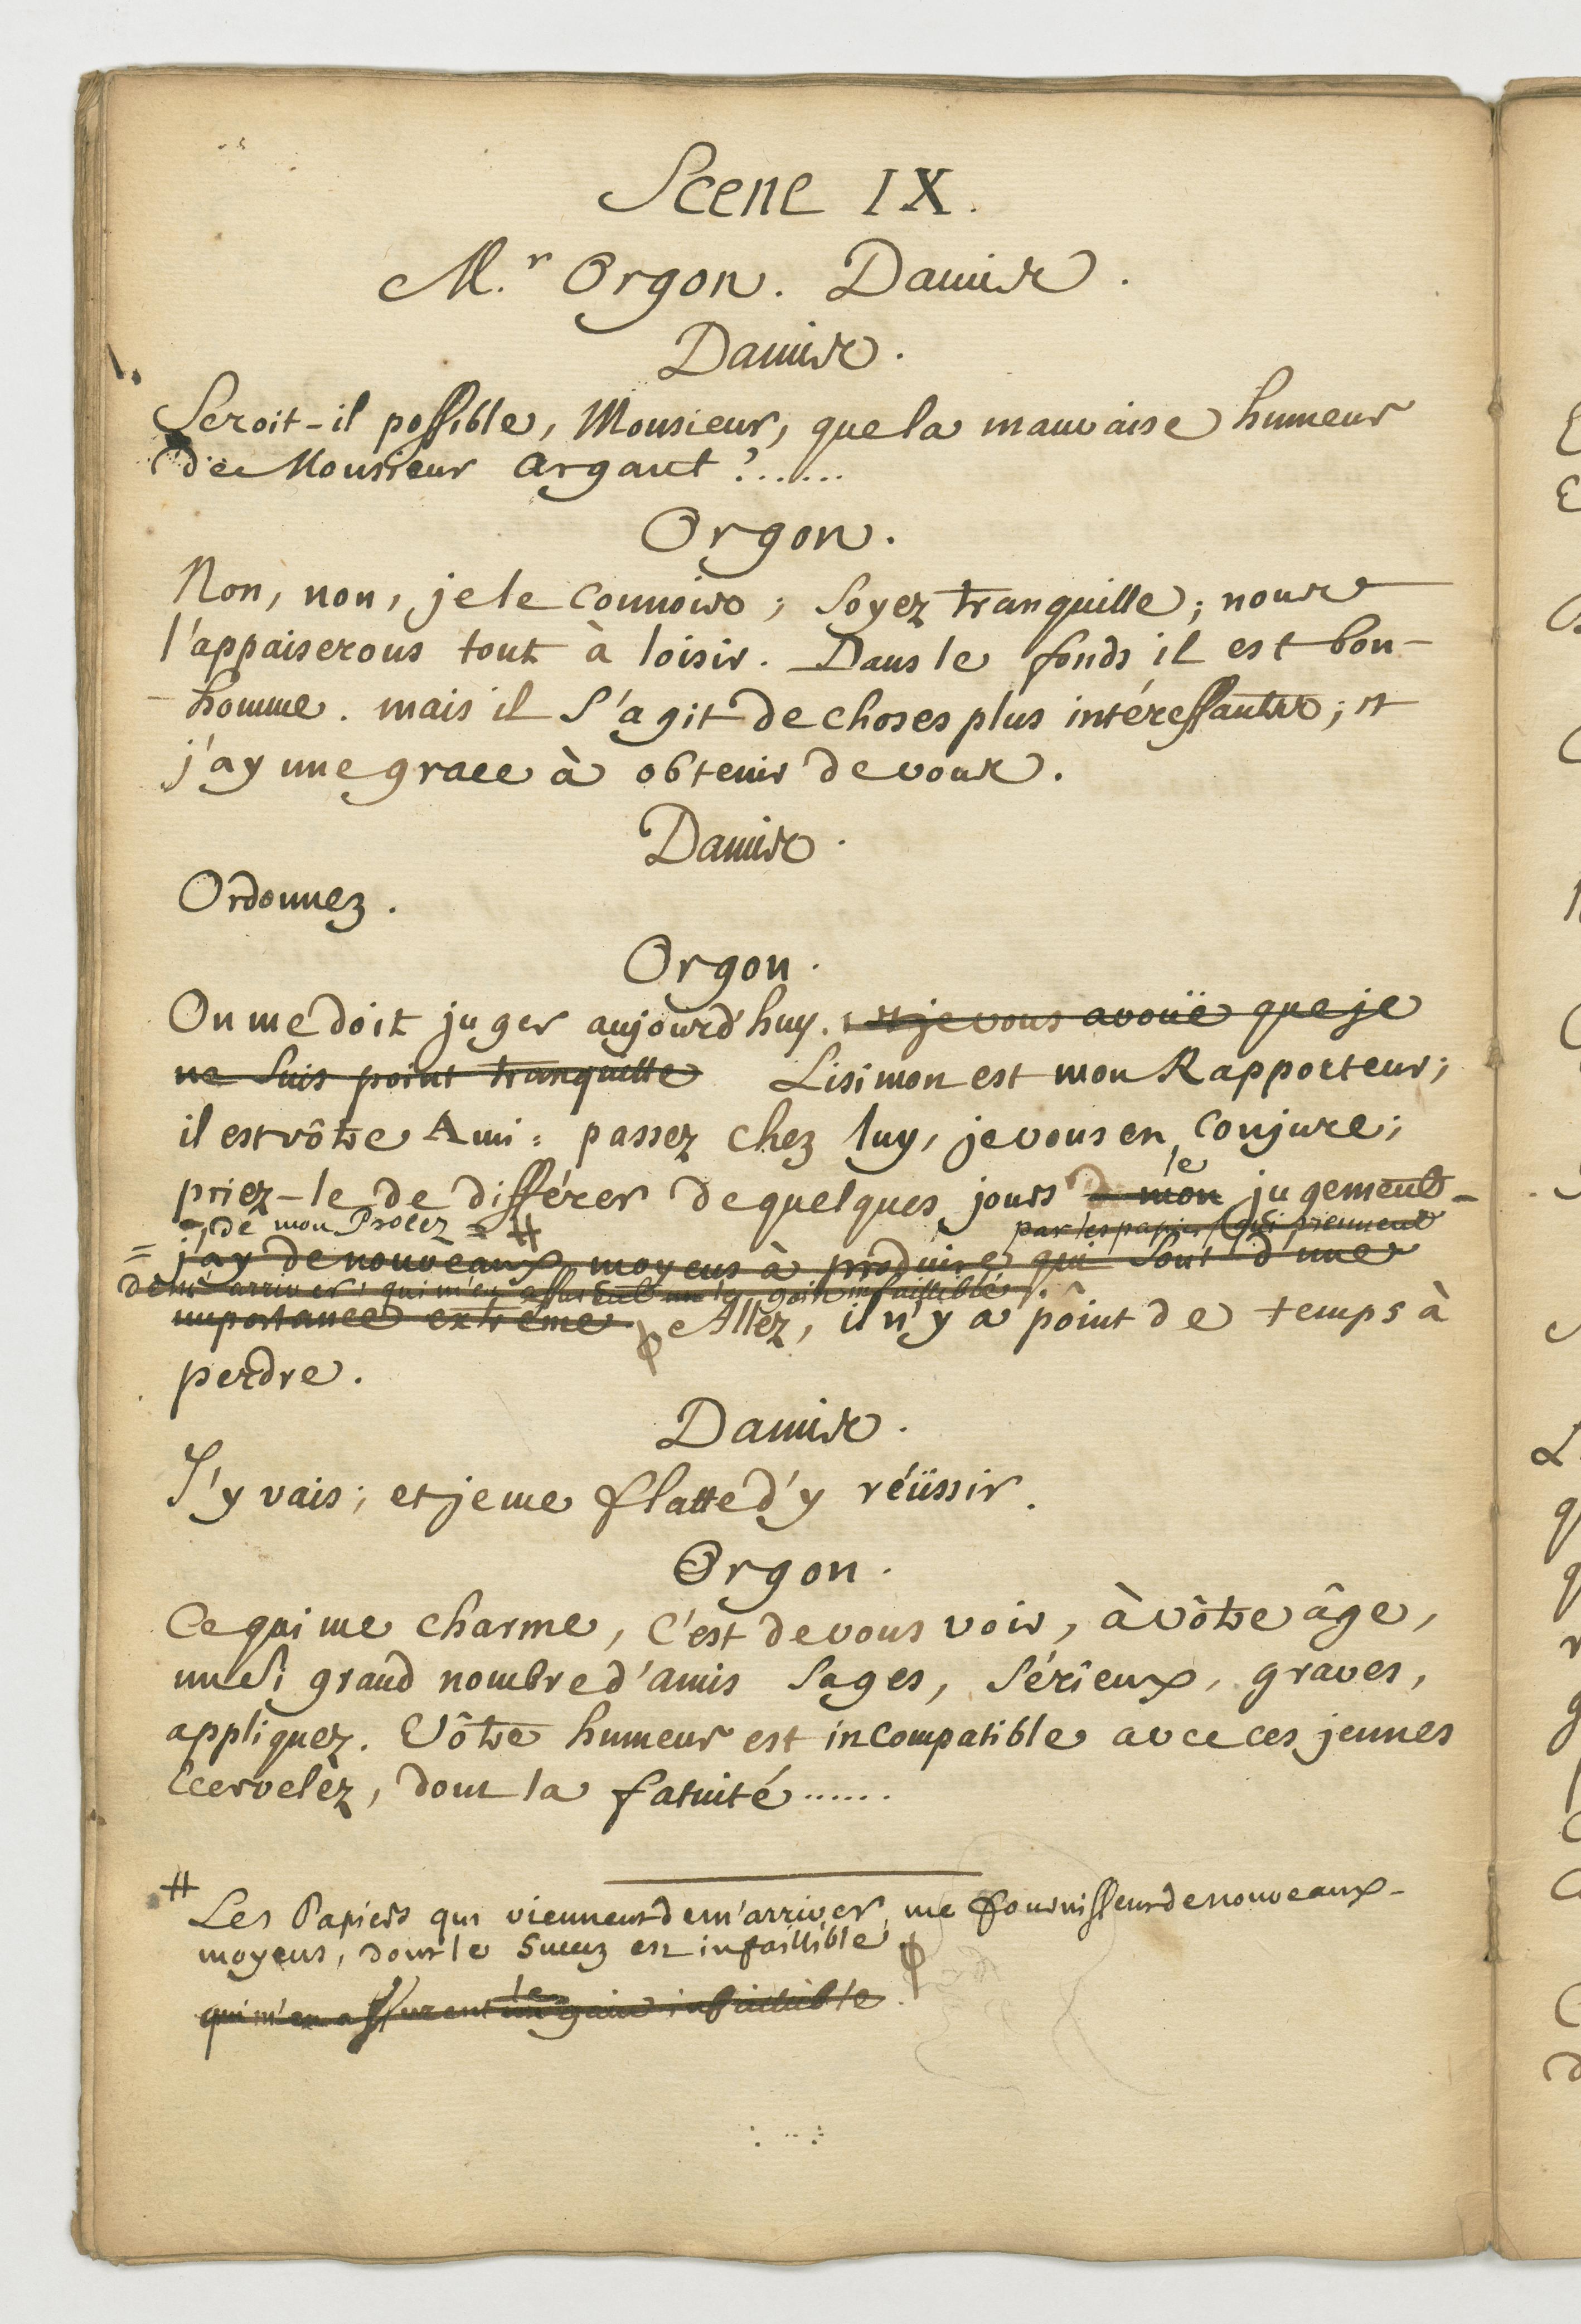 Scene IX.
M.r Orgon. Damis.
Damis.
Seroit-il possible, Monsieur, que la mauvaise humeur
de Monsieur Argant ?......
Orgon.
Non, non, je le connois ; soyez tranquille ; nous
l'appaiserons tout à loisir. Dans le fonds il est bon-
-homme. mais il s'agit de choses plus intéressantes ; et
j'ay une grace à obtenir de vous.
Damis.
Ordonnez.
Orgon.
On me doit juger aujourd'huy. et je vous avoüe que je
ne suis point tranquille Lisimon est mon Rapporteur ;
il est vôtre Ami : passez chez luy, je vous en conjure ;
le
priez-le de différer de quelques jours mon jugement-
de mon Procez = # par les papiers qui viennent
= j'ay de nouveaux moyens à produire qui sont d'une
de m'arriver, qui m'en assurent le gain infaillible.
importance extrême. Allez, il n'y a point de temps à
perdre.
Damis.
J'y vais ; et je me flatte d'y réüssir.
Orgon.
Ce qui me charme, c'est de vous voir, à vôtre âge,
un si grand nombre d'amis sages, sérieux, graves,
appliquez. Vôtre humeur est incompatible avec ces jeunes
Ecervelèz, dont la fatuité......
# Les Papiers qui viennent de m'arriver, me fournissent de nouveaux-
moyens, dont le succez est infaillible. ϕ
le
qui m'en assurent un gain infaillible.